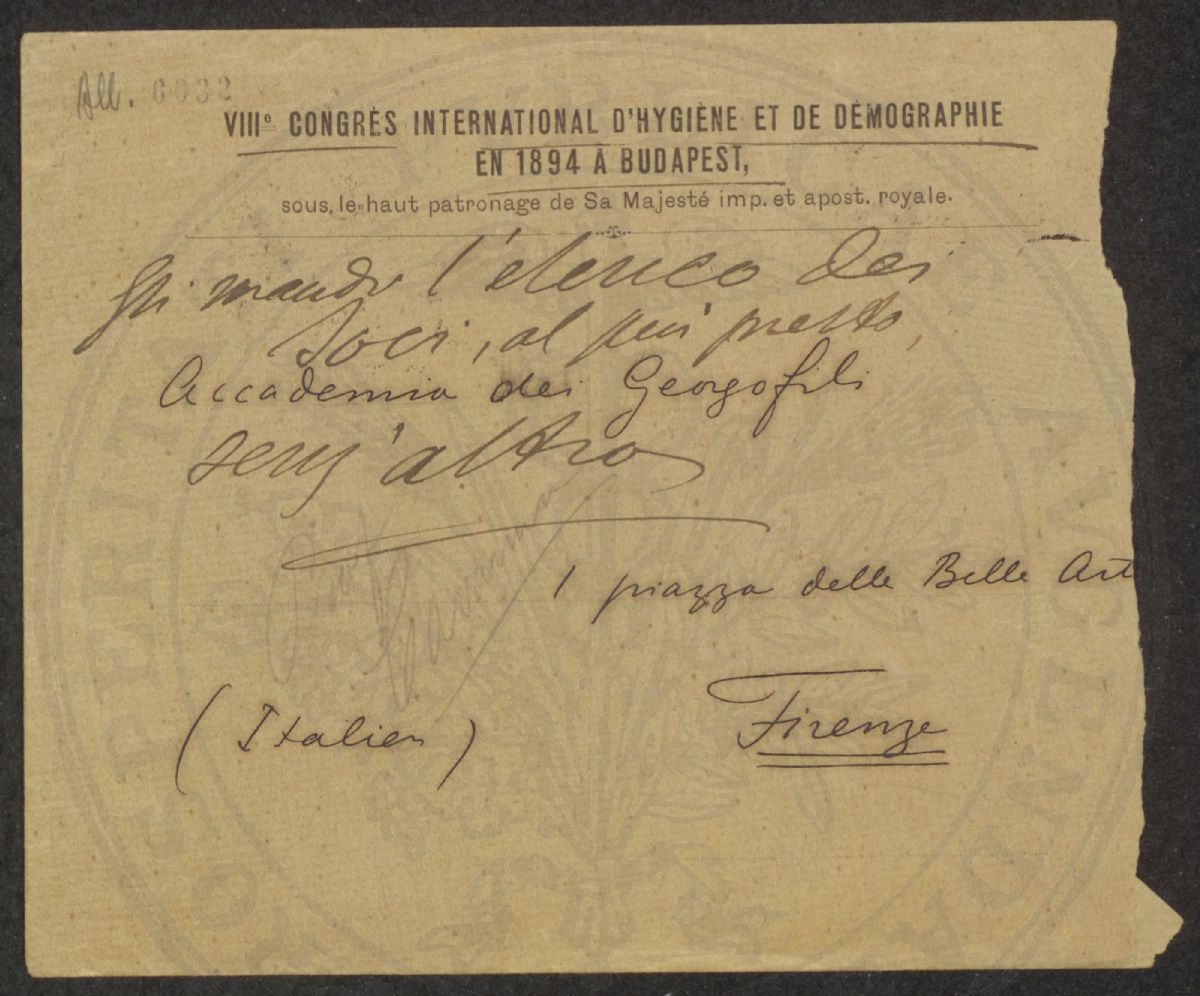 All. 6032
VIIIe CONGRÈS INTERNATIONAL D'HYGIÈNE ET DE DÉMOGRAPHIE
EN 1894 À BUDAPEST,
sous le haut patronage de Sa Majesté imp. et apost. royale.
Gli mandi l'elenco dei
Soci, al più presto,
Accademia dei Georgofili
senz'altro
1 piazza delle Belle Art
(Italien)
Firenze